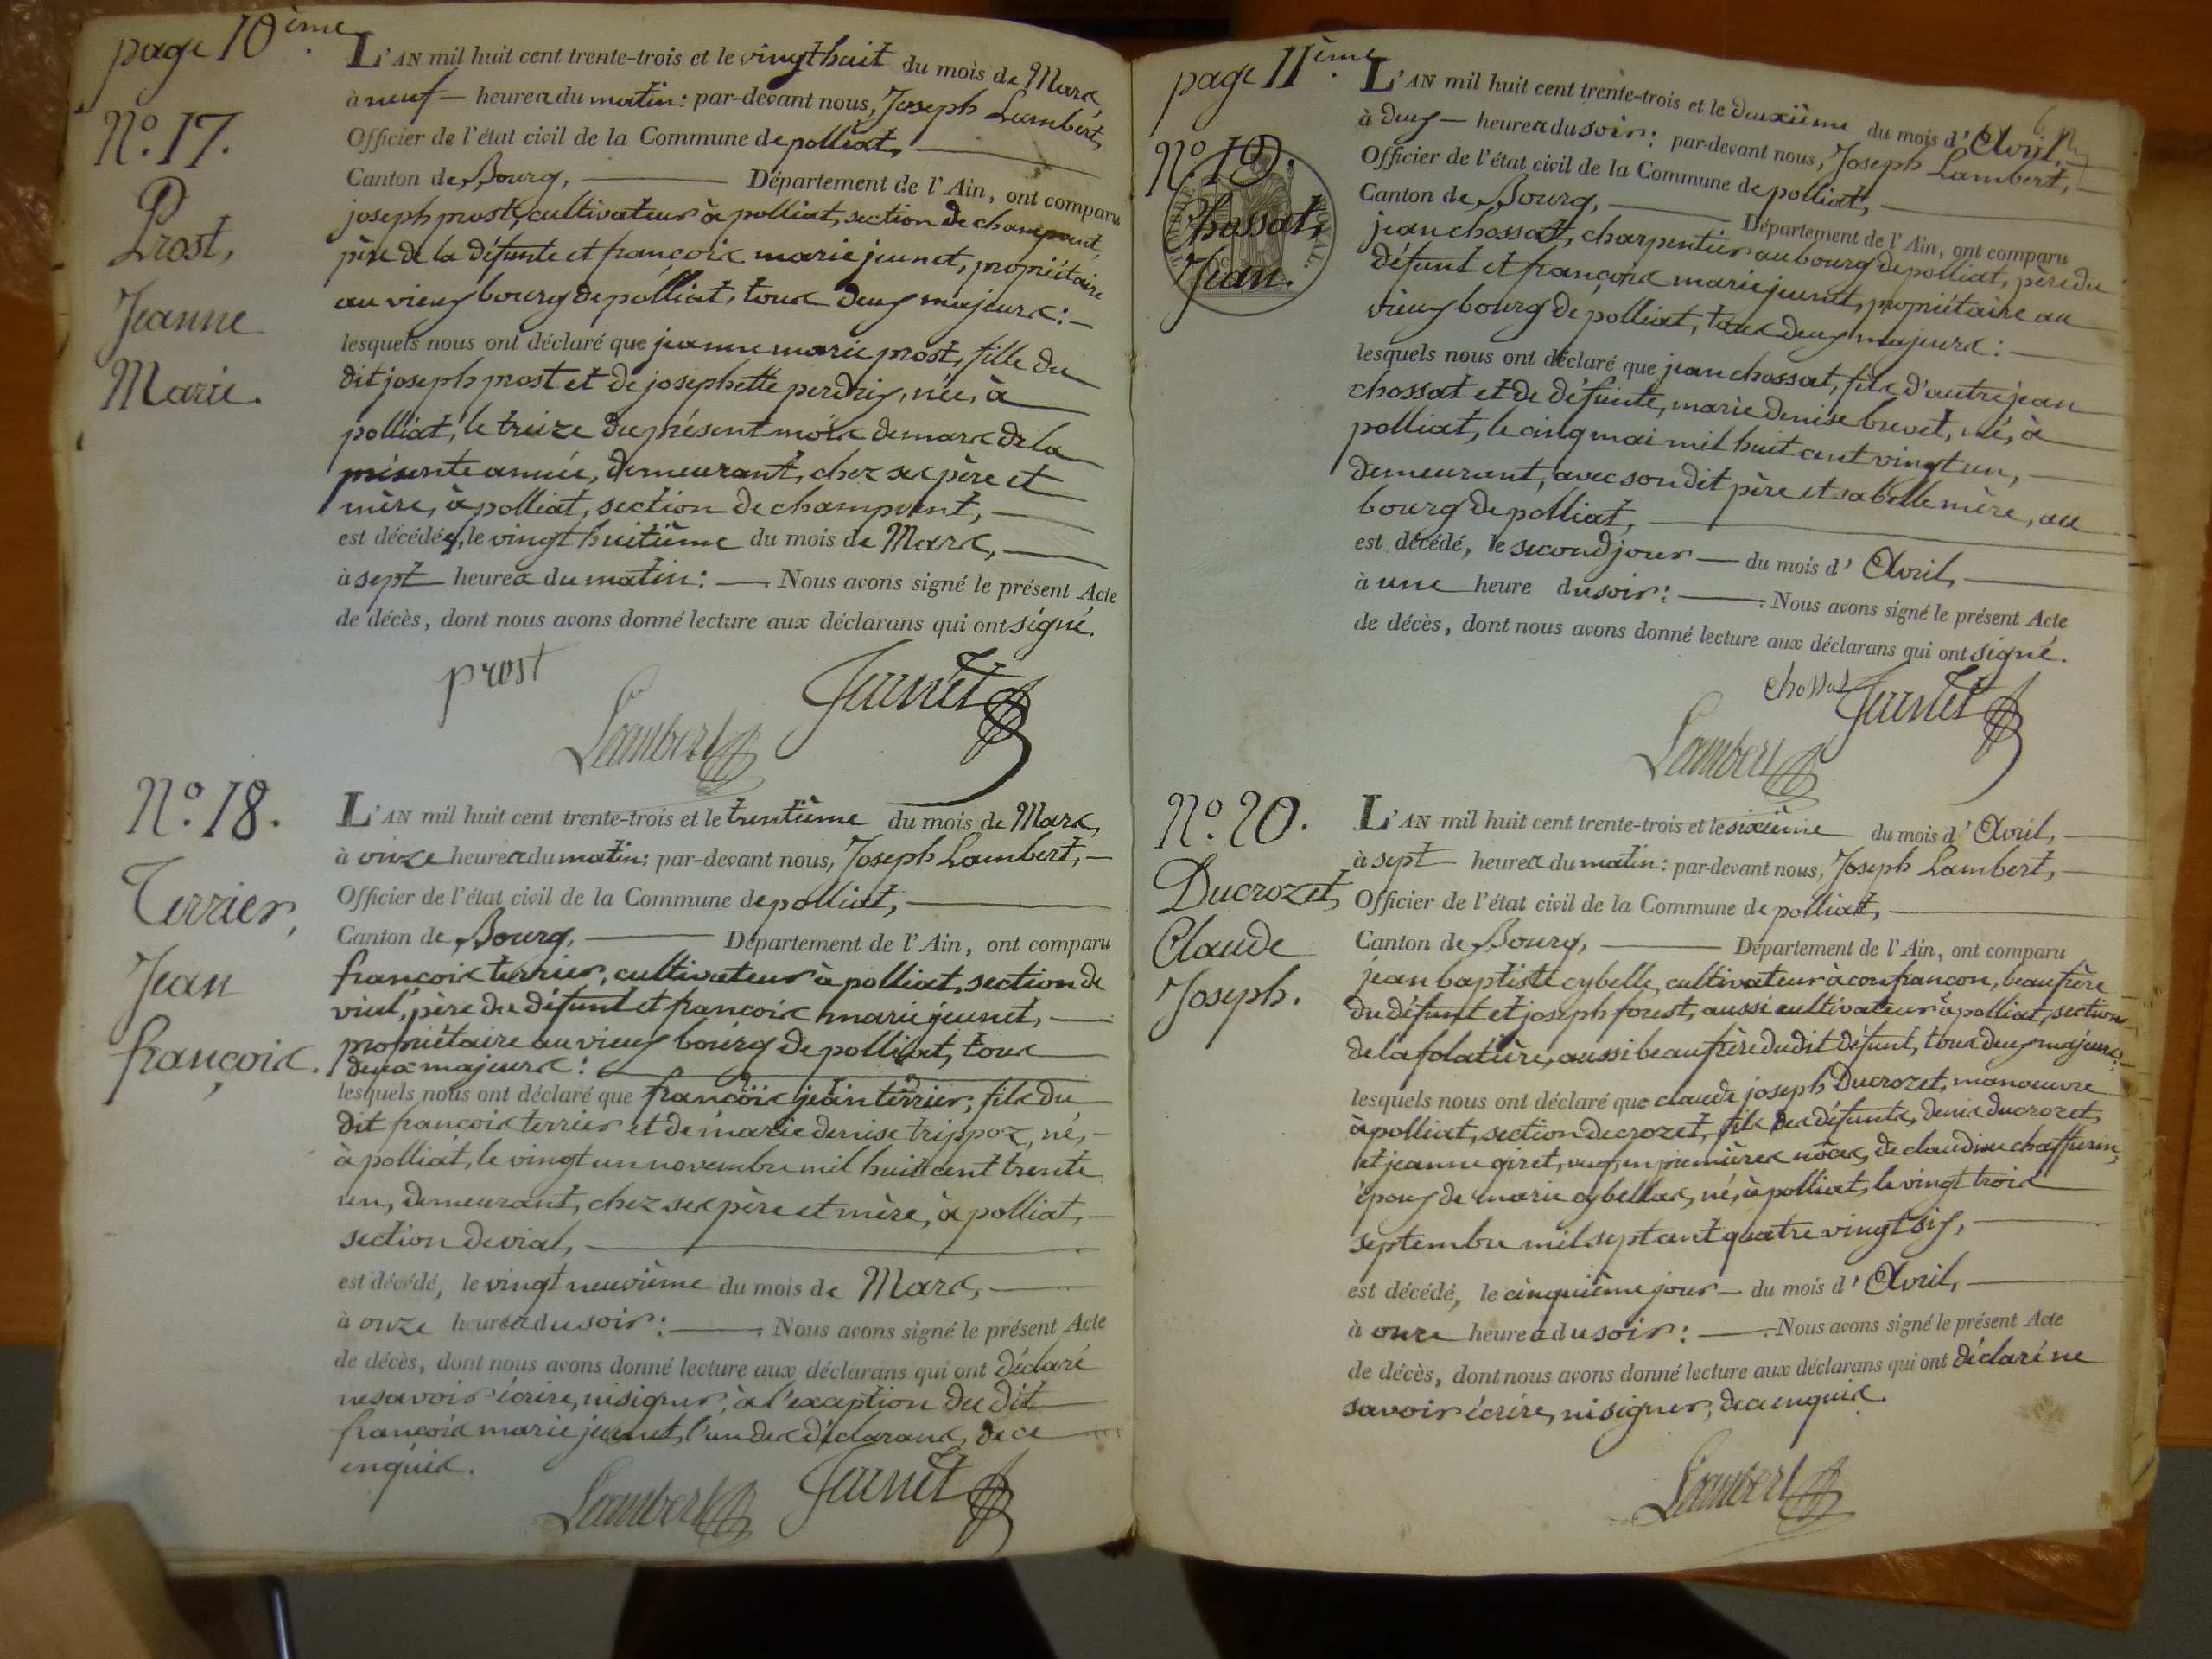 page 10ème
L'AN mil huit cent trente-trois et le vingt huit du mois de Mars,
à neuf — heures du matin: par-devant nous, Joseph Lambert,
N.º 17.
Officier de l'état civil de la Commune de polliat,
Canton de Bourg, Département de l'Ain, ont comparu
Prost,
Jeanne
Marie.
joseph prost, cultivateur à polliat, section de champvent,
père de la défunte et françois marie jeunet, propriétaire
au vieux bourg de polliat, tous deux majeurs:
lesquels nous ont déclaré que jeanne marie prost, fille du
dit joseph prost et de josephette perdrix, née, à
polliat, le treize du présent mois de mars de la
présente année, demeurant, chez ses père et
mère, à polliat, section de champvent,
est décédée, le vingt huitième du mois de Mars,
à sept heures du matin: Nous avons signé le présent Acte
de décès, dont nous avons donné lecture aux déclarans qui ont signé.
prost
Jeunet
Lambert
N.º 18.
L'AN mil huit cent trente-trois et le trentième du mois de Mars,
à onze heures du matin: par-devant nous, Joseph Lambert,
Officier de l'état civil de la Commune de polliat,
Canton de Bourg, Département de l'Ain, ont comparu
Terrier,
Jean
françois.
françois terrier, cultivateur à polliat, section de
vial, père du défunt et françois marie jeunet,
propriétaire au vieux bourg de polliat, tous
deux majeurs:
lesquels nous ont déclaré que françois jean terrier, fils du
dit françois terrier et de marie denise trippoz, né,
à polliat, le vingt un novembre mil huit cent trente
un, demeurant, chez ses père et mère, à polliat,
section de vial,
est décédé, le vingt neuvième du mois de Mars,
à onze heures du soir: Nous avons signé le présent Acte
de décès, dont nous avons donné lecture aux déclarans qui ont déclaré
ne savoir écrire, ni signer, à l'exception du dit
françois marie jeunet, l'un des déclarans, de ce
enquis.
Lambert Jeunet
page 11ème
L'AN mil huit cent trente-trois et le deuxième du mois d'Avril,
à deux — heures du soir: par-devant nous, Joseph Lambert,
N.º 19.
Officier de l'état civil de la Commune de polliat,
Canton de Bourg, Département de l'Ain, ont comparu
Chossat,
Jean.
jean chossat, charpentier au bourg de polliat, père du
défunt et françois marie jeunet, propriétaire au
vieux bourg de polliat, tous deux majeurs:
lesquels nous ont déclaré que jean chossat, fils d'autre jean
chossat et de défunte, marie denise buvet, né, à
polliat, le cinq mai mil huit cent vingt un,
demeurant, avec son dit père et sa belle mère, au
bourg de polliat,
est décédé, le second jour du mois d'Avril,
à une heure du soir: Nous avons signé le présent Acte
de décès, dont nous avons donné lecture aux déclarans qui ont signé.
chossat Jeunet
Lambert
N.º 20.
L'AN mil huit cent trente-trois et le sixième du mois d'Avril,
à sept heures du matin: par-devant nous, Joseph Lambert,
Officier de l'état civil de la Commune de polliat,
Canton de Bourg, Département de l'Ain, ont comparu
Ducrozet,
Claude
Joseph.
jean baptiste cybelle, cultivateur à confrançon, beau frère
du défunt et joseph forest, aussi cultivateur à polliat, section
de la folatière, aussi beau frère du dit défunt, tous deux majeurs:
lesquels nous ont déclaré que claude joseph Ducrozet, manœuvre
à polliat, section de crozet, fils des défunts, denis ducrozet,
et jeanne giret, veuf, en premières nôces, de claudine chaffurin,
époux de marie cybellas, né, à polliat, le vingt trois
septembre mil sept cent quatre vingt six,
est décédé, le cinquième jour du mois d'Avril,
à onze heures du soir: Nous avons signé le présent Acte
de décès, dont nous avons donné lecture aux déclarans qui ont déclaré ne
savoir écrire, ni signer, de ce enquis.
Lambert